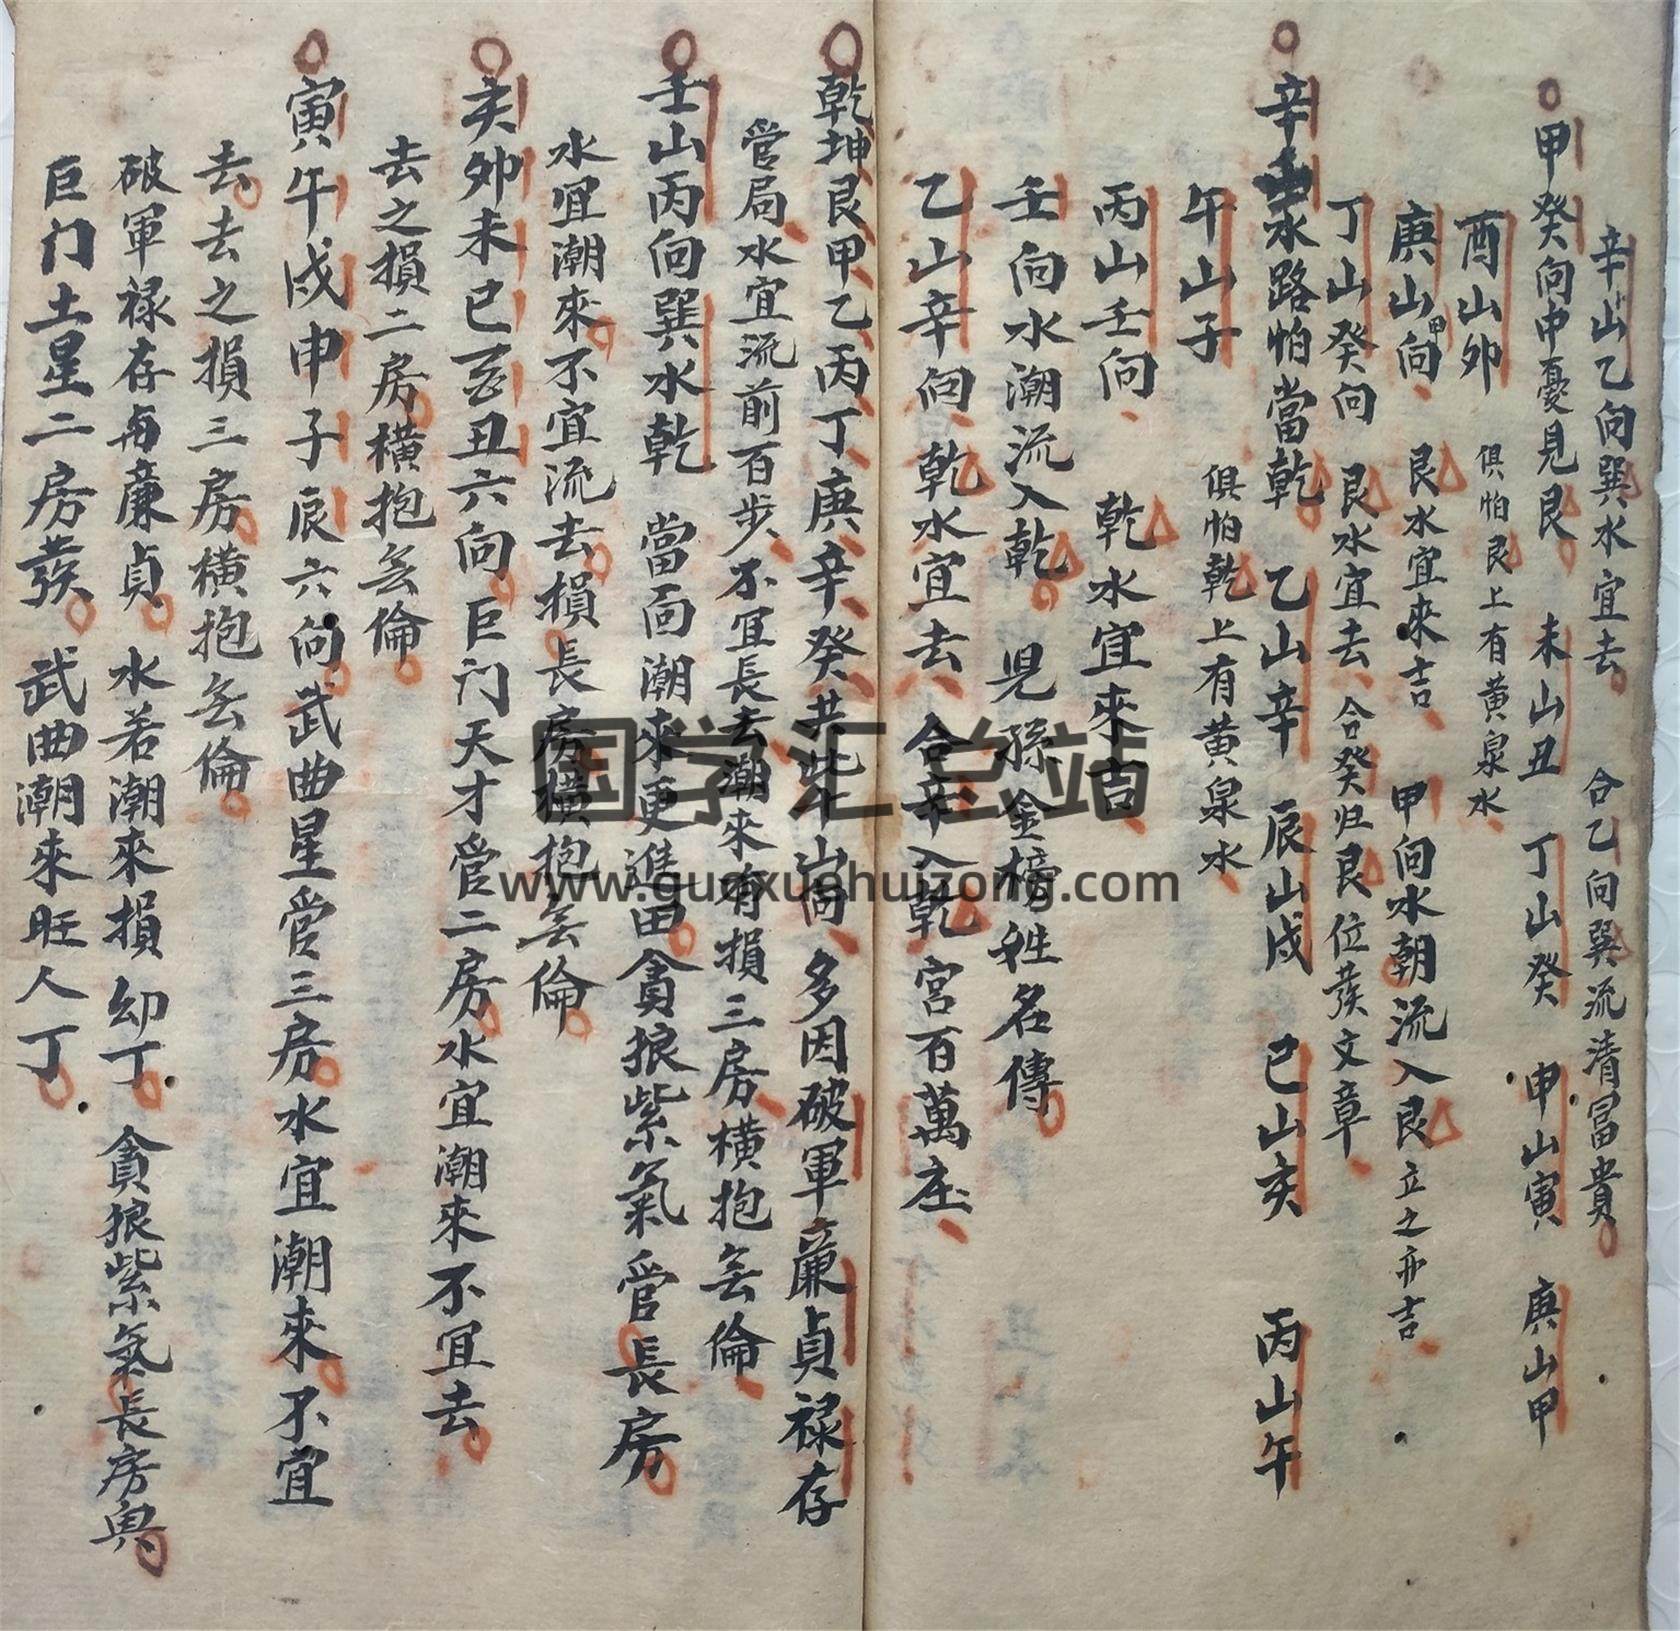 辛山乙向巽水宜去 合乙向巽流清冨貴
甲癸向中憂見艮 未山丑 丁山癸 申山寅 庚山甲
酉山卯 俱怕艮上有黄泉水
庚山甲向 艮水宜來吉 甲向水朝流入艮 立之亦吉
丁山癸向 艮水宜去 合癸归艮位發文章
辛壬水路怕當乾 乙山辛 辰山戌 巳山亥 丙山午
午山子 俱怕乾上有黄泉水
丙山壬向 乾水宜來吉
壬向水潮流入乾 児孫金榜姓名傳
乙山辛向 乾水宜去 合辛入乾宮百萬庄
乾坤艮甲乙丙丁庚辛癸共此十山向 多因破軍廉貞禄存
管局水宜流前百步不宜長去潮來有損三房横抱無倫
壬山丙向巽水乾 當面潮來更進田貪狼紫氣管長房
水宜潮來不宜流去損長房横抱無倫
亥卯未巳酉丑六向巨门天才管二房水宜潮來不宜去
去之損二房横抱無倫
寅午戌申子辰六向武曲星管三房水宜潮來不宜
去去之損三房横抱無倫
破軍禄存與廉貞 水若潮來損幼丁 貪狼紫氣長房興
巨门土星二房發 武曲潮來旺人丁
国学汇总站
www.guoxuehuizong.com